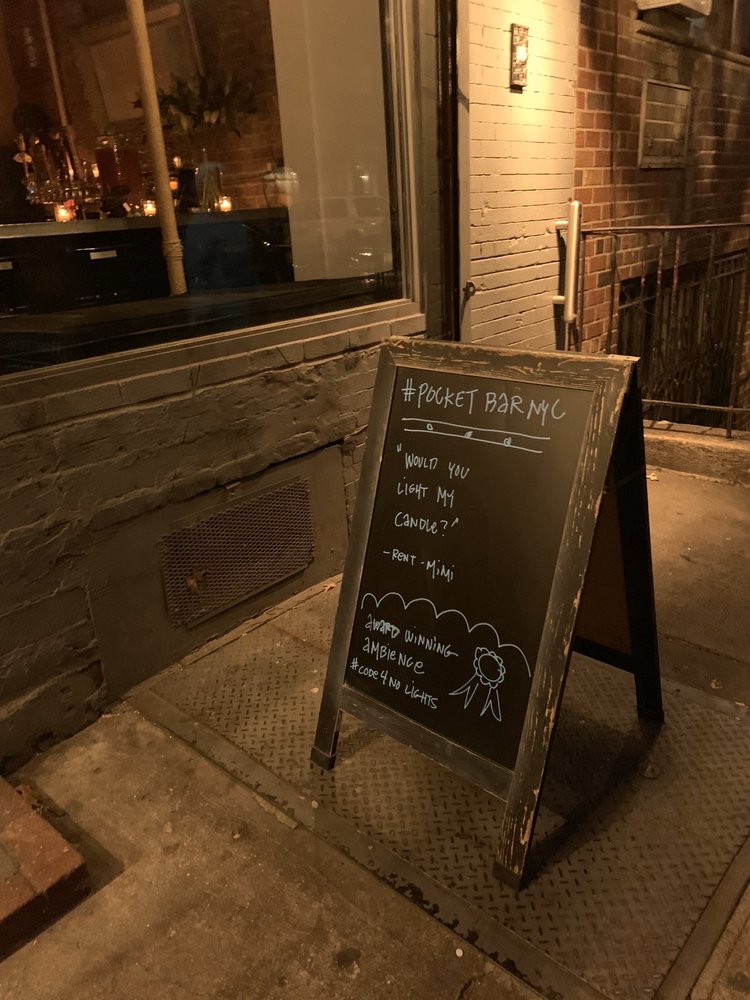 #POCKET BAR NYC
"WOULD YOU
LIGHT MY
CANDLE?"
-RENT-MIMI
AWARD WINNING
AMBIENCE
#CODE 4 NO LIGHTS